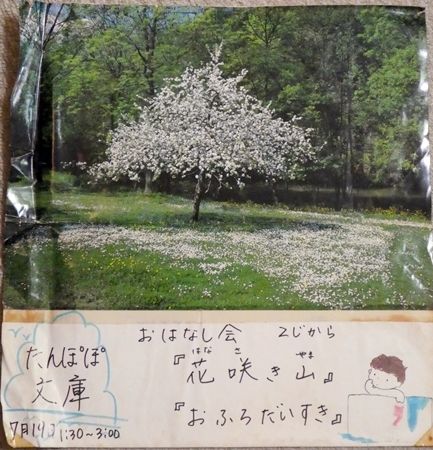 おはなし会 2じから
はな さ やま
『花咲き山』
『おふろだいすき』
たんぽぽ
文庫
7月19日 1:30~3:00